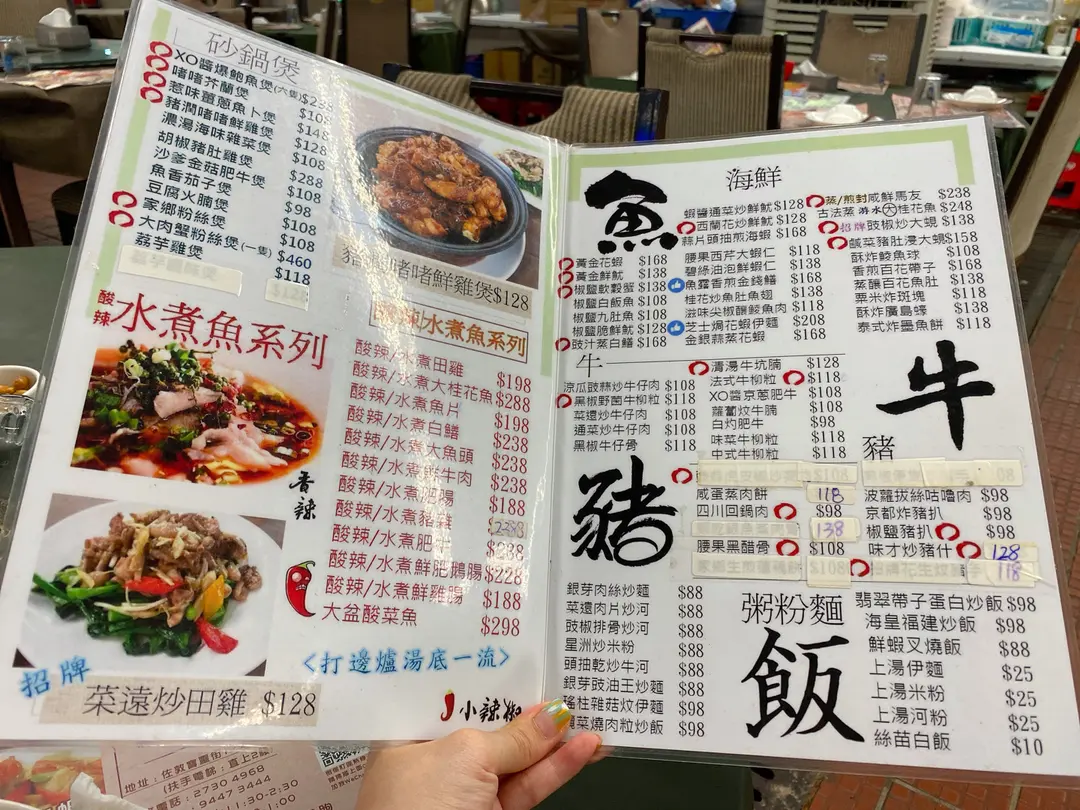 砂鍋煲
XO醬爆鮑魚煲(六隻)$238
啫啫芥蘭煲 $108
惹味薑蔥魚卜煲 $148
豬潤啫啫鮮雞煲 $128
濃湯海味雜菜煲 $108
胡椒豬肚雞煲 $288
沙爹金菇肥牛煲 $108
魚香茄子煲 $98
豆腐火腩煲 $108
家鄉粉絲煲 $108
大肉蟹粉絲煲(一隻) $460
荔芋雞煲 $118
啫啫鮮雞煲$128
酸辣
水煮魚系列
香辣
水煮魚系列
酸辣/水煮田雞 $198
酸辣/水煮大桂花魚$288
酸辣/水煮魚片 $198
酸辣/水煮白鱔 $238
酸辣/水煮大魚頭 $238
酸辣/水煮 牛肉 $238
酸辣/水煮肥腸 $188
酸辣/水煮豬雜
酸辣/水煮肥牛 $238
酸辣/水煮鮮肥鵝腸$228
酸辣/水煮鮮雞腸 $188
大盆酸菜魚 $298
<打邊爐湯底一流>
招牌
菜遠炒田雞 $128
小辣椒
魚
海鮮
蝦醬通菜炒鮮魷$128
西蘭花炒鮮魷 $128
蒜片頭抽煎海蝦 $168
蒸/煎封咸鮮馬友 $238
古法蒸游水大桂花魚 $248
招牌豉椒炒大蜆 $138
鹹菜豬肚浸大蜆$158
黃金花蝦 $168
黃金鮮魷 $138
椒鹽軟殼蟹 $138
椒鹽白飯魚 $108
椒鹽九肚魚 $108
椒鹽脆鮮魷 $128
豉汁蒸白鱔 $168
腰果西芹大蝦仁 $118
碧綠油泡鮮蝦仁 $138
魚露香煎金錢鱔 $168
桂花炒魚肚魚翅 $138
滋味尖椒釀鯪魚肉 $118
芝士焗花蝦伊麵 $208
金銀蒜蒸花蝦 $168
酥炸鯪魚球 $108
香煎百花帶子 $168
蒸釀百花魚肚 $138
粟米炸斑塊 $118
酥炸廣島蠔 $138
泰式炸墨魚餅 $118
牛
涼瓜豉蒜炒牛仔肉 $108
黑椒野菌牛柳粒 $118
菜遠炒牛仔肉 $108
通菜炒牛仔肉 $108
黑椒牛仔骨 $118
清湯牛坑腩 $128
法式牛柳粒 $118
XO醬京蔥肥牛 $108
蘿蔔炆牛腩 $108
白灼肥牛 $98
味菜牛柳粒 $118
中式牛柳粒 $118
牛
豬
豬
咸蛋蒸肉餅 118
四川回鍋肉 $98
138
腰果黑醋骨 $108
波蘿拔絲咕嚕肉 $98
京都炸豬扒 $98
椒鹽豬扒 $98
味才炒豬什 128
118
銀芽肉絲炒麵 $88
菜遠肉片炒河 $88
豉椒排骨炒河 $88
星洲炒米粉 $88
頭抽乾炒牛河 $88
銀芽豉油王炒麵 $88
瑤柱雜菇炆伊麵 $98
菜燒肉粒炒飯 $98
粥粉麵
飯
翡翠帶子蛋白炒飯 $98
海皇福建炒飯 $98
鮮蝦叉燒飯 $88
上湯伊麵 $25
上湯米粉 $25
上湯河粉 $25
絲苗白飯 $10
地址：佐敦寶靈街
(扶手電梯：直上2
電話：2730 4968
9447 3444
11:30-2:30